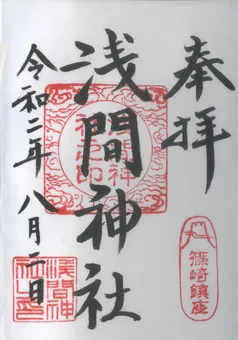 奉拝
浅間神社
令和二年八月二日
篠崎鎮座
浅間神社之印